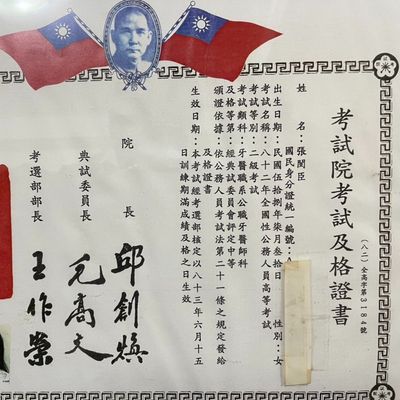 考試院考試及格證書
(八二)全高字第3184號
姓名:張閔臣
國民身分證統一編號:
出生日期:民國伍拾捌年柒月叁拾日 性別:女
考試名稱:八十二年全國性公務人員高等考試
考試等別:二級考試
考試類科:牙醫職系公職牙醫師科
及格等第:經典試委員會評定中等
頒證依據:依公務人員考試法第二十一條之規定發給
及格證書
生效日期:本考試經考選部核定以八十三年六月十五
日訓練期滿成績及格之日生效
院長 邱創煥
典試委員長 毛高文
考選部部長 王作榮